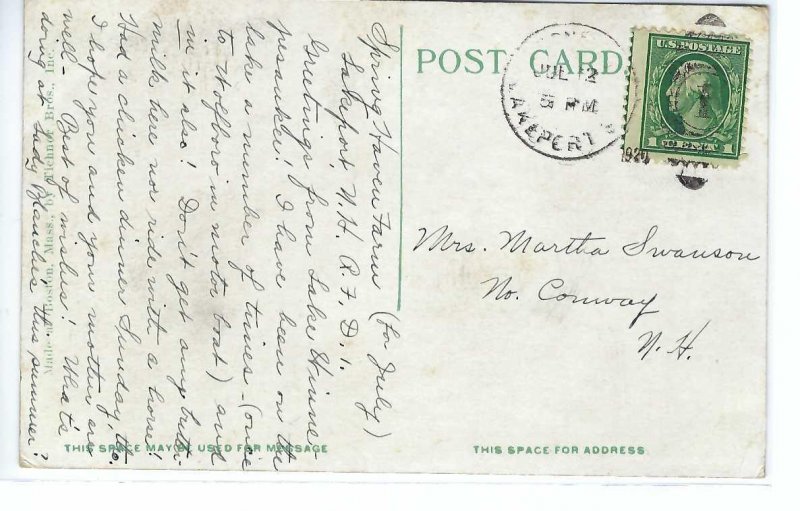 Spring Haven Farm (for July)
Lakeport N.H. R.F.D. 1.
Greetings from Lake Winne-
pesaukee! I have been on the
lake a number of times - (once
to Wolfboro in motor boat) and
in it also! Don't get any butter-
milk here nor ride with a horse!
Had a chicken dinner Sunday, tho.
I hope you and your mother are
well - Best of wishes! What's
doing at Lady Blanche's this summer?
Made Boston, Mass., by Tichnor Bros., Inc.
THIS SPACE MAY BE USED FOR MESSAGE
POST CARD
JUL 12
5 PM
LAKEPORT
1920
U.S. POSTAGE
1 CENT 1
Mrs. Martha Swanson
No. Conway
N.H.
THIS SPACE FOR ADDRESS